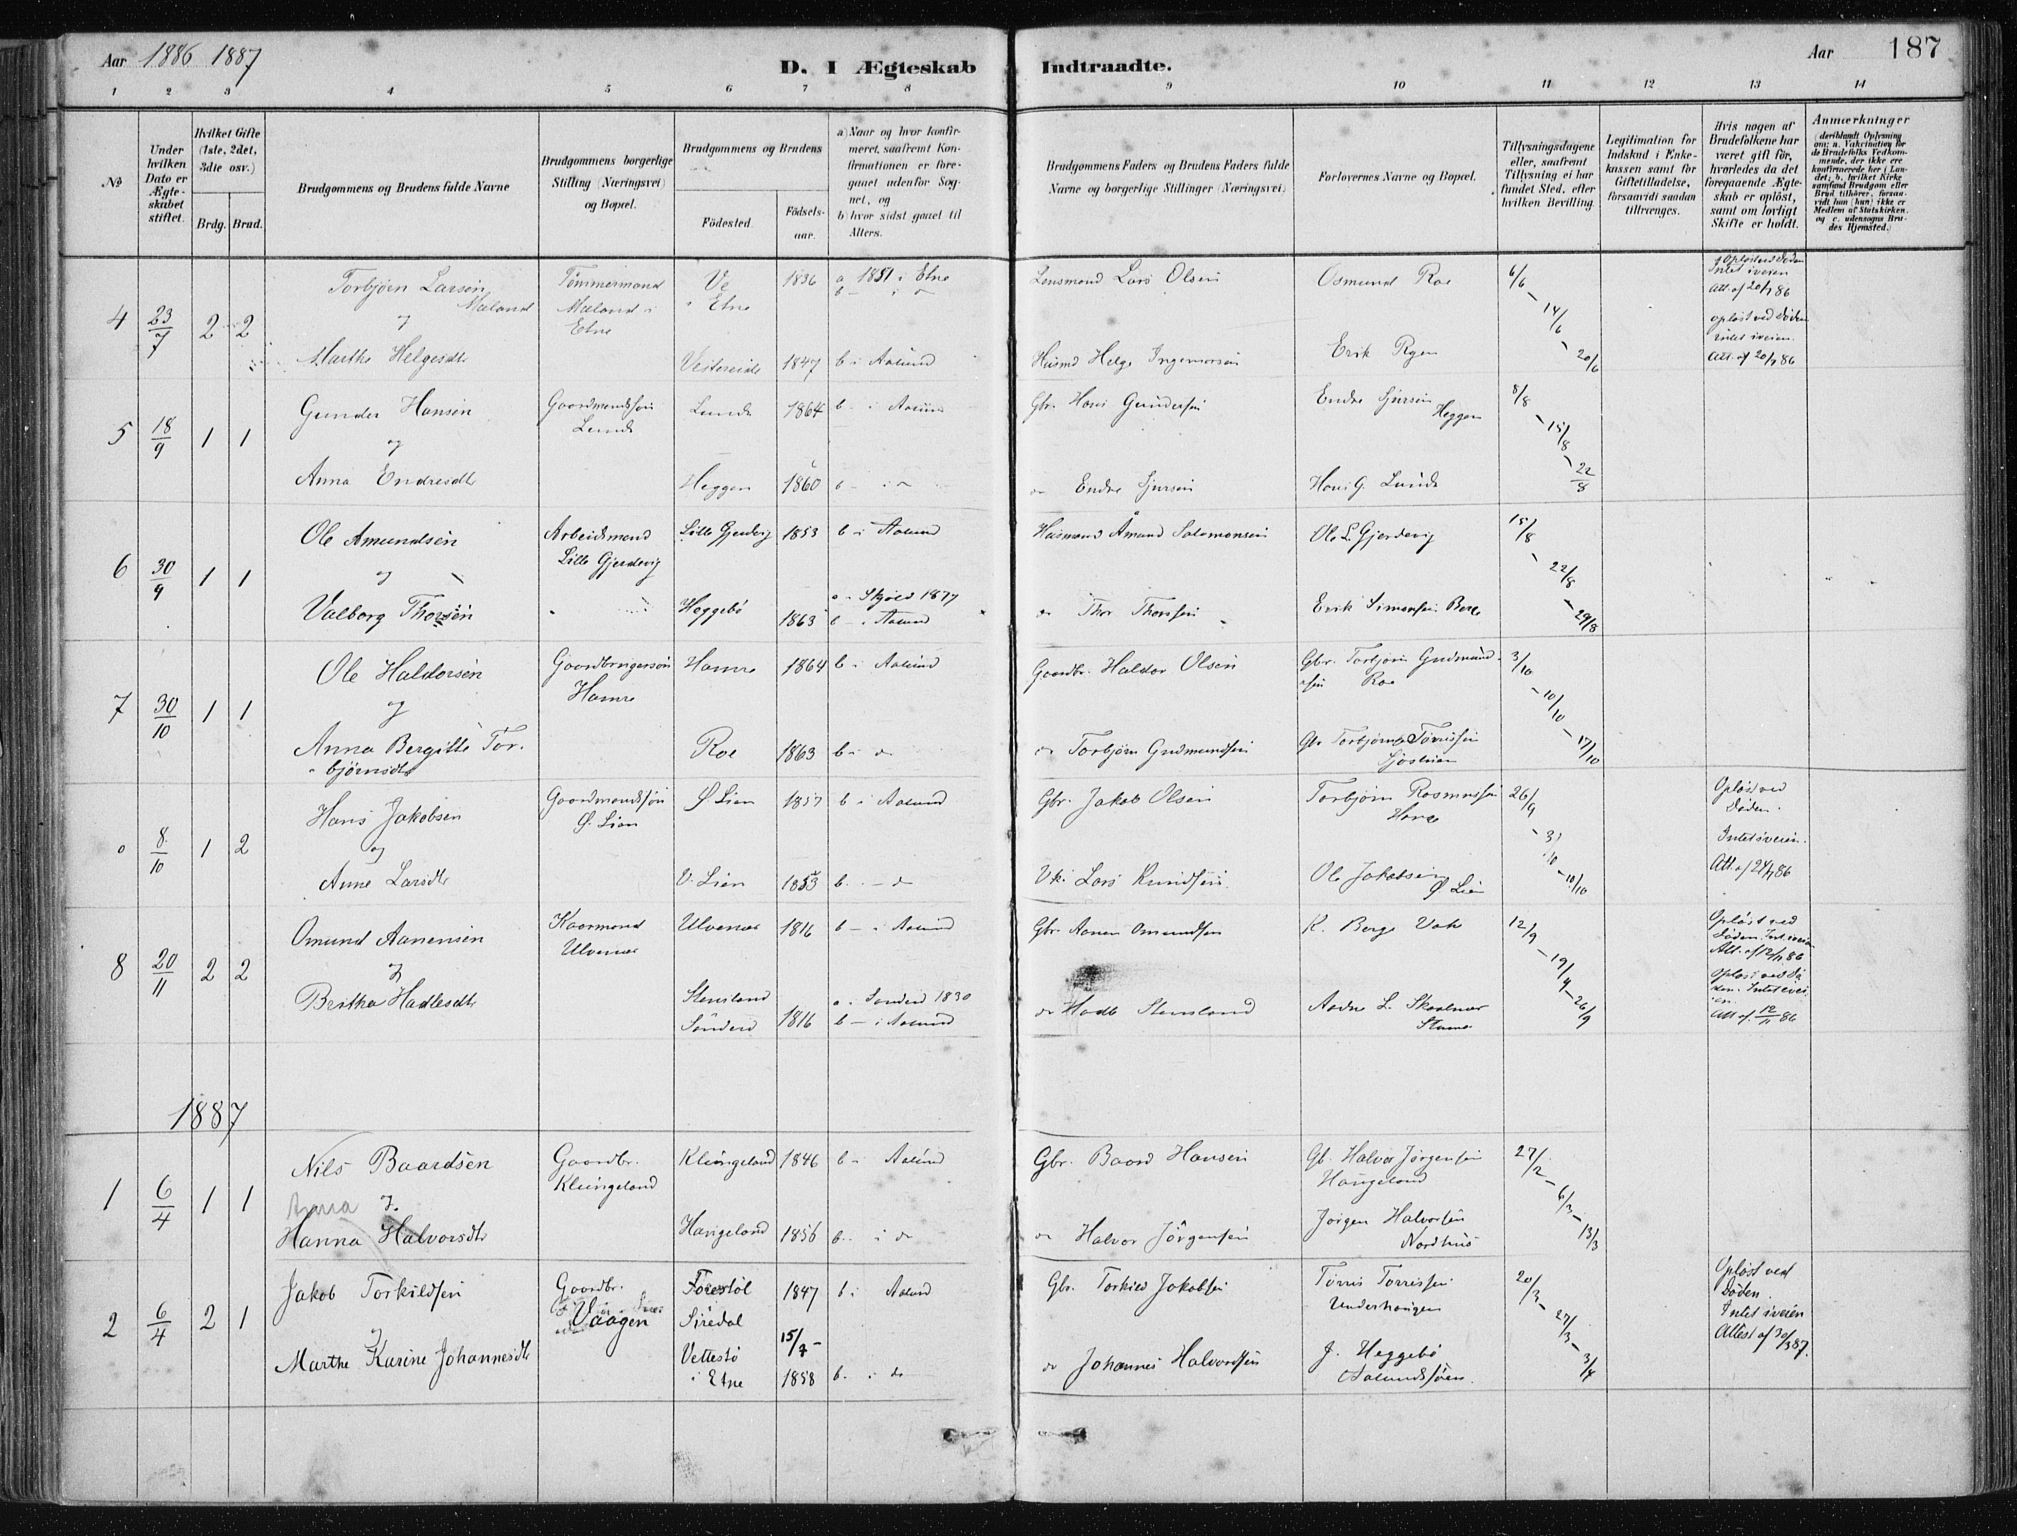 Aar 1886 1887
D. I Ægteskab Indtraadte.
Aar 187
1 2 3 4 5 6 7 8 9 10 11 12 13 14
No
Under hvilken Dato er Ægteskabet stiftet.
Hvilket Gifte (1ste, 2det, 3die osv.)
Brdg. Brud.
Brudgommens og Brudens fulde Navne
Brudgommens borgerlige Stilling (Næringsvei) og Bopæl.
Brudgommens og Brudens
Födested.
Födselsaar.
a) Naar og hvor konfirmeret, saafremt Konfirmationen er foregaaet udenfor Sognet, og
b) hvor sidst gaaet til Alters.
Brudgommens Faders og Brudens Faders fulde Navne og borgerlige Stillinger (Næringsvei)
Forlovernes Navne og Bopæl.
Tillysningsdagene eller, saafremt Tillysning ei har fundet Sted, efter hvilken Bevilling.
Legitimation for Indskud i Enkekassen samt for Giftetilladelse, forsaavidt saadan tiltrænges.
Hvis nogen af Brudefolkene har været gift før, hvorledes da det foregaaende Ægteskab er opløst, samt om lovligt Skifte er holdt.
Anmærkninger
(deriblandt Oplysning om: a. Vakcination for de Brudefolks Vedkommende, der ikke ere konfirmerede her i Landet; b. hvilket Kirkesamfund Brudgom eller Brud tilhører, forsaavidt han (hun) ikke er Medlem af Statskirken, og c. udensogns Brudes Hjemsted.)
4 23/7 2 2
Torbjörn Larsen Mæland
og
Marthe Helgesdtr
Tömmermand Mæland i Etne
Ve i Etne 1836
a 1851 i Etne
Vestereide 1847 b i Aalund
Lensmand Lars Olsen
Husmd Helge Ingemarsen
Osmund Roe
6/6 - 14/6 - 20/6
Intet iveien
Att. af 20/7 86
opløst ved Döden
Intet iveien.
Att. af 20/7 86
5 18/9 1 1
Gunder Hansen
og
Anna Endresdtr
Gaardmandssön Lunde
Lunde 1864 b - i Aalund
Heggen 1860 b - i do
Gbr. Hans Gundersen
do Endre Sjursen
Endre Sjursen Heggen
Hans G. Lunde
8/8 - 15/8 - 22/8
6 30/9 1 1
Ole Amundsen
og
Valborg Thorsen
Arbeidsmand Lille Gjerdevig
Lille Gjerdevig 1853 b i Aalund
Heggebö 1863
a - Skjold 1877
b - i Aalund
Husmand Åmund Salomonsen
do Thor Thorsen
Ole L. Gjerdevig
Erik Simonsen Berge
15/8 - 22/8 - 29/8
7 30/10 1 1
Ole Haldorsen
og
Anna Bergitte Torbjörnsdtr
Gaardbrugersön Hamre
Hamre 1864 b i Aalund
Roe 1863 b i do
Gaardbr. Haldor Olsen
do Torbjörn Gudmundsen
Gbr. Torbjörn Gudmundsen Roe
Gbr Torbjörn Törrissen
3/10 - 10/10 - 17/10
8/10 1 2
Hans Jakobsen
og
Anne Larsdtr
Gaardmandssön Ö. Lien
Ö Lien 1857 b i Aalund
V. Lien 1853 b. - do
Gbr. Jakob Olsen
Lars Knudsen
Torbjörn Rasmussen
Ole Jakobsen Ö Lien
26/9 - 3/10 - 10/10
Opløst ved Döden.
Intet iveien.
8 20/11 2 2
Omund Aanensen
og
Britha Hadlesdtr
Kaarmand Ulvenæs
Ulvenæs 1816 b - i Aalund
Stensland Sönderö 1816
a - Sönderö 1830
b - i Aalund
Gbr. Aanen Omundsen
do Hadle Stensland
K. Berge
Aadne L. Skaalnæs
12/9 - 19/9 - 26/9
Opløst ved Döden. Intet iveien
Opløst ved Döden. Intet iveien.
Att af. 12/11 86
1887
1 6/4 1 1
Nils Baardsen
og
Anna
Hanna Halvorsdtr
Gaardbr. Klungeland
Klungeland 1846 b - Aalund
Haugeland 1856 b. i do
Gbr. Baard Hansen
do Halvor Jörgensen
Gb. Halvor Jörgensen Haugeland
Jörgen Halvorsen Nordhus
27/2 - 6/3 - 13/3
2 6/4 2 1
Jakob Torkildsen
og
Marthe Karine Johannesdtr
Gaardbr. Vaagen
Forestöl Siredal 1847 b i Aalund
Vettestö i Etne 15/7 - 1858 b. i do
Gbr. Torkild Jakobsen
do Johannes Halvordsen
Törris Törrissen Underhaugen
J. Heggebö Aalundsöen.
20/3 - 27/3 - 3/4
Opløst ved Döden.
Intet iveien
Attest af 30/3 87.